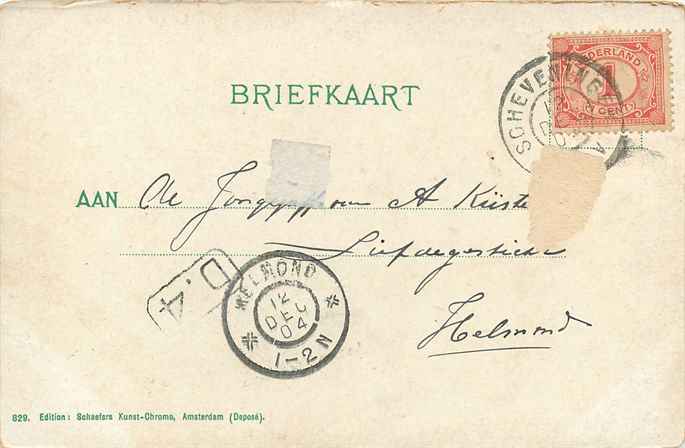 BRIEFKAART
NEDERLAND
1
CENT
SCHEVENINGEN
AAN De A
Liefdegesticht
Helmond
D.4
HELMOND
12
DEC
04
1-2N
829. Edition: Schaefers Kunst-Chromo, Amsterdam (Deposé).